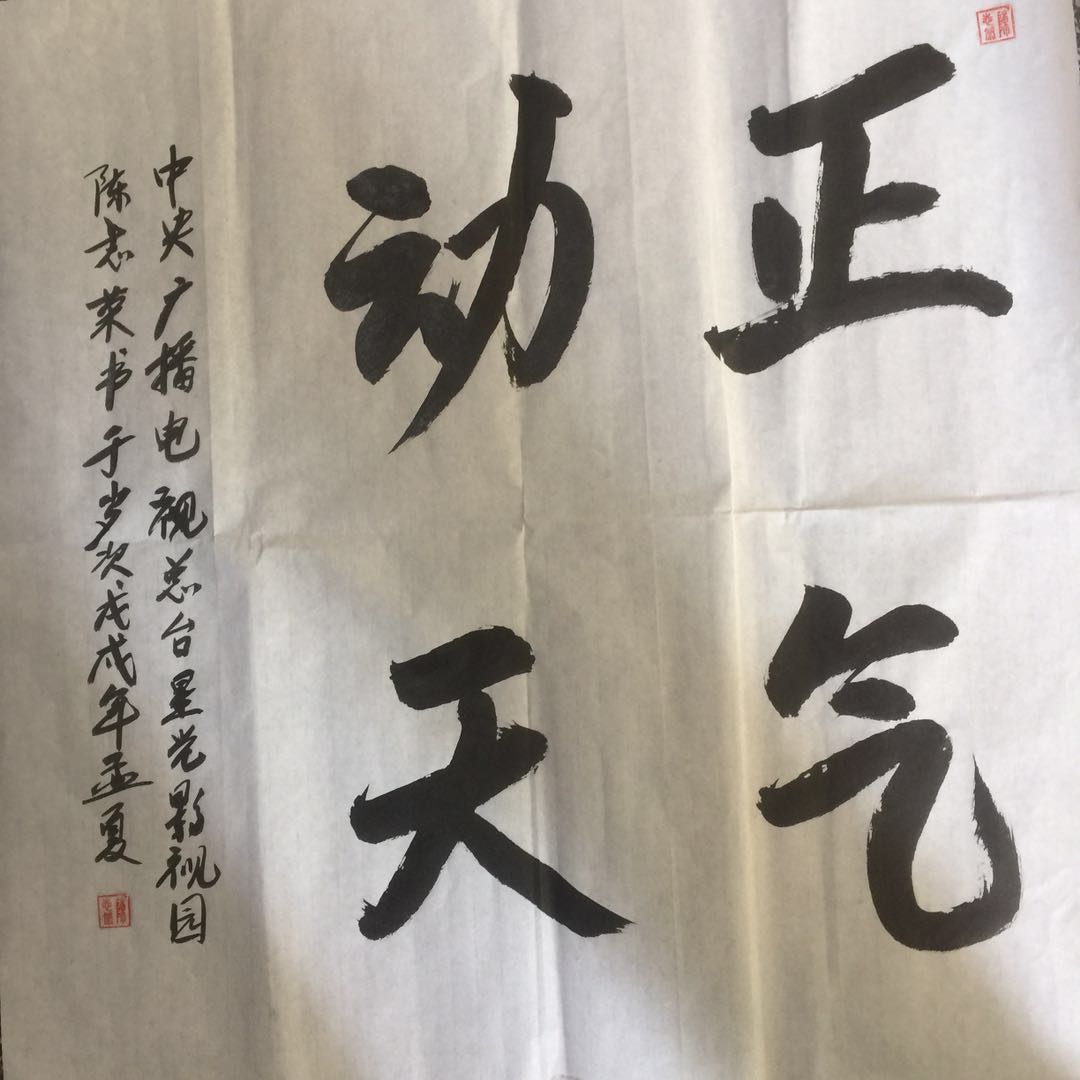 正气
动天
中央广播电视总台星光影视园
陈志荣书于岁次戊戌年孟夏